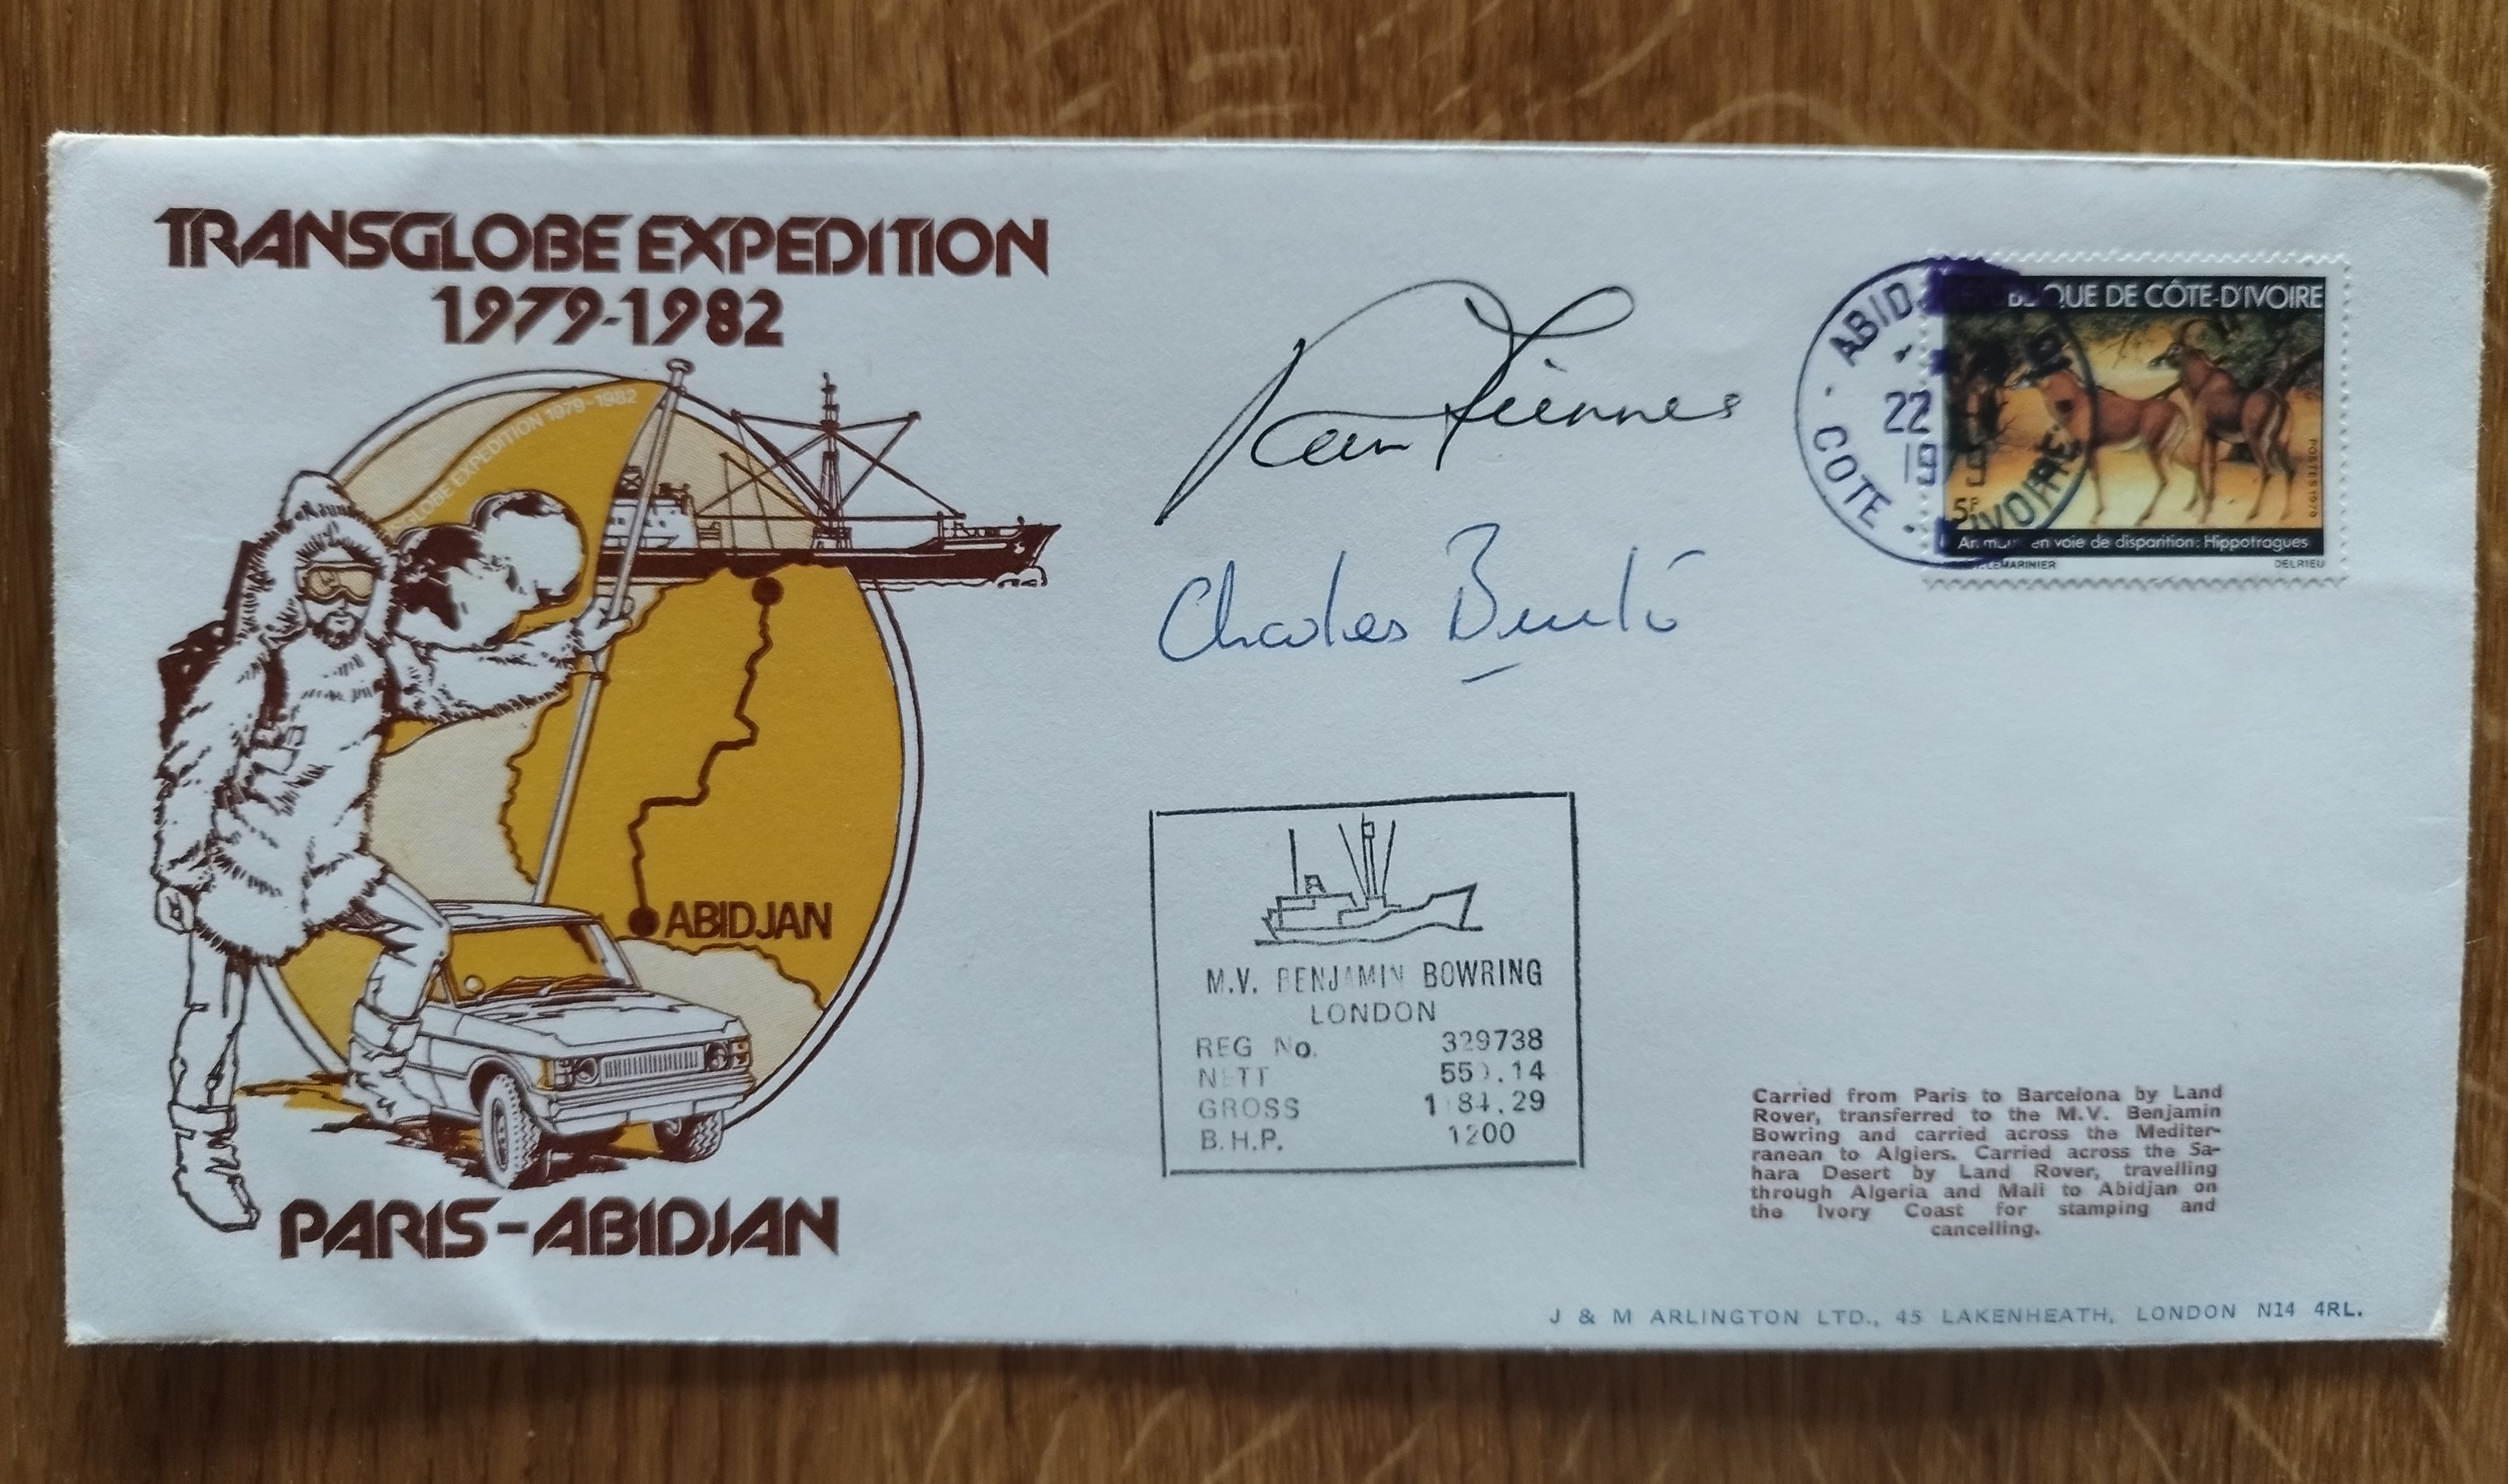 TRANSGLOBE EXPEDITION
1979-1982
GLOBE EXPEDITION 1979-1982
ABIDJAN
PARIS-ABIDJAN
Ran Fiennes
Charles Burton
M.V. BENJAMIN BOWRING
LONDON
REG No. 329738
NETT
GROSS
B.H.P. 1200
22
COTE D'IVOIRE
QUE DE CÔTE-D'IVOIRE
5F
POSTES 1979
en voie de disparition: Hippotragues
LEMARINIER DELRIEU
Carried from Paris to Barcelona by Land
Rover, transferred to the M.V. Benjamin
Bowring and carried across the Mediter-
ranean to Algiers. Carried across the Sa-
hara Desert by Land Rover, travelling
through Algeria and Mali to Abidjan on
the Ivory Coast for stamping and
cancelling.
J & M ARLINGTON LTD., 45 LAKENHEATH, LONDON N14 4RL.